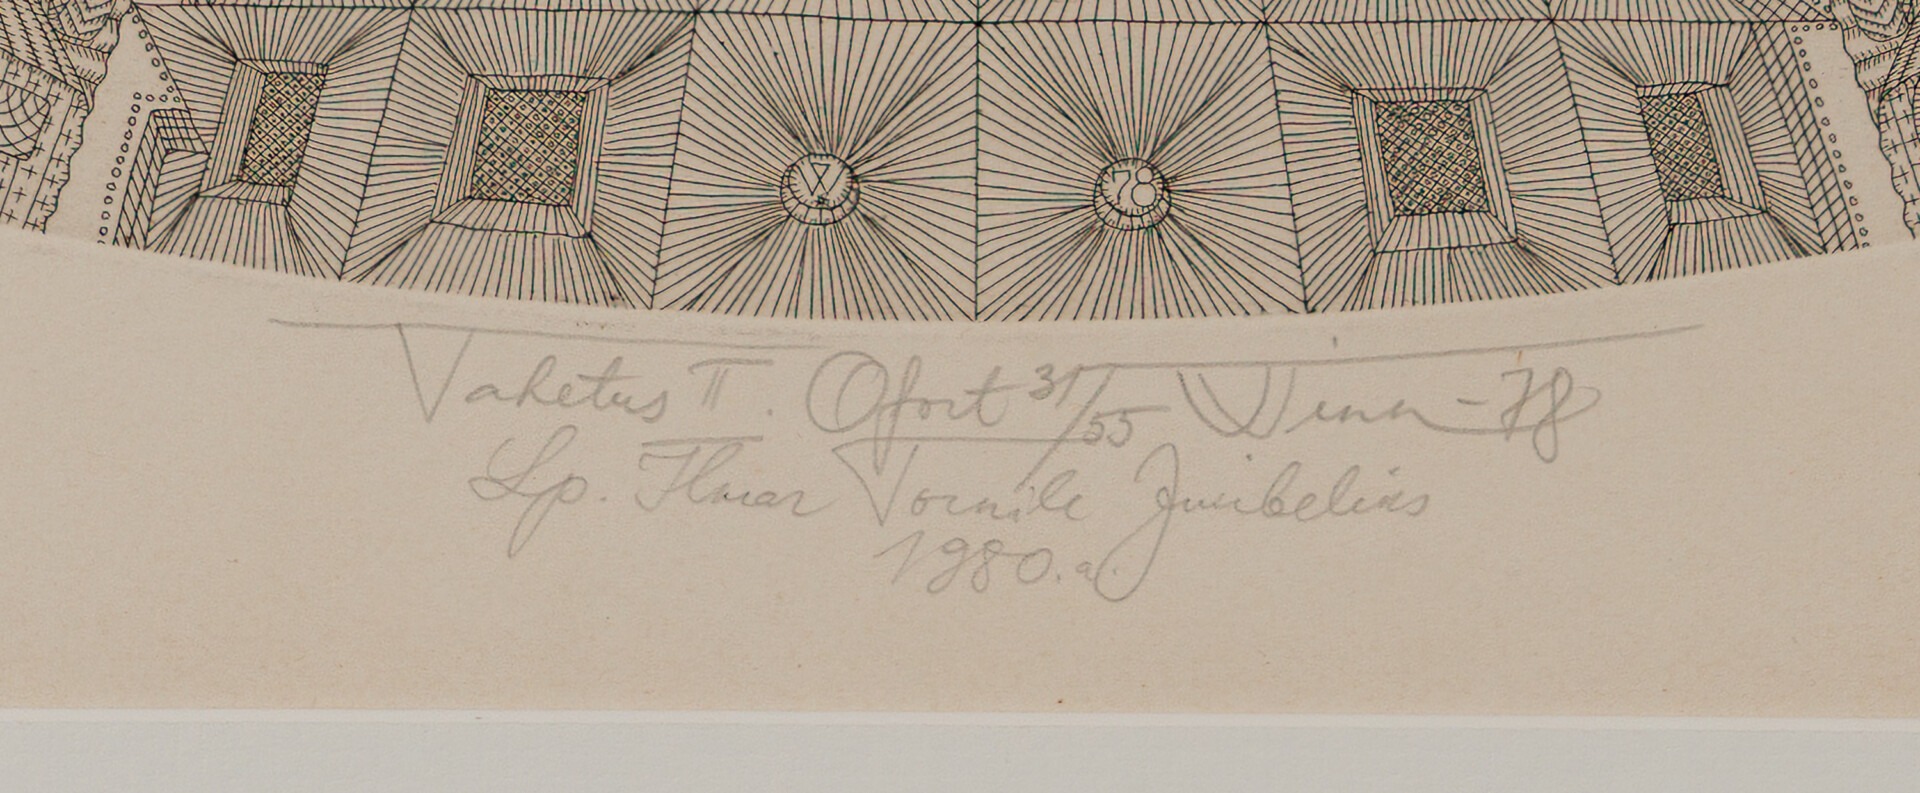 V
78
Vahetus II. Ofort 31/55 Vint-78
Lp. Ilmar Tornile Juubeliks
1980.a.